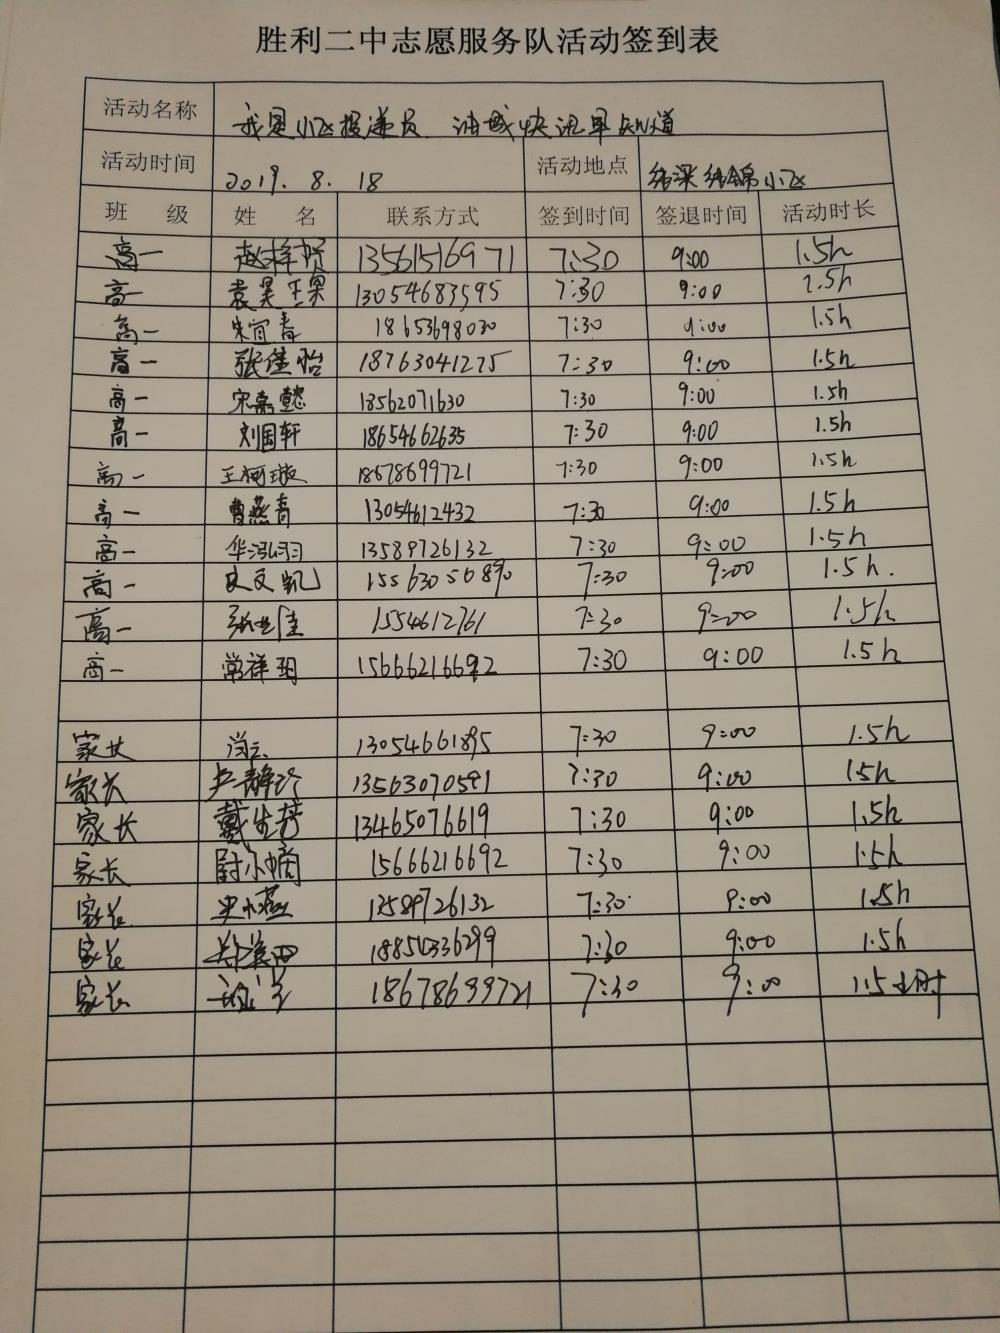 胜利二中志愿服务队活动签到表
活动名称 我是小飞投递员 油城快讯早知道
活动时间 2019. 8. 18 活动地点 纬深纬锦小飞
班 级 姓 名 联系方式 签到时间 签退时间 活动时长
高一 赵梓贺 13561516971 7:30 9:00 1.5h
高一 袁昊 13054683595 7:30 9:00 1.5h
高一 朱宜青 18653698030 7:30 9:00 1.5h
高一 张佳怡 18763041275 7:30 9:00 1.5h
高一 宋嘉懿 18562071630 7:30 9:00 1.5h
高一 刘国轩 18654662635 7:30 9:00 1.5h
高一 王柯璇 18678699721 7:30 9:00 1.5h
高一 曹燕青 13054612432 7:30 9:00 1.5h
高一 华泓 13589726132 7:30 9:00 1.5h
高一 文凯 15563056890 7:30 9:00 1.5h.
高一 张世佳 1554612761 7:30 9:00 1.5h
高一 常祥玥 15666216692 7:30 9:00 1.5h
家长 13054661895 7:30 9:00 1.5h
家长 卢静玲 13563070591 7:30 9:00 1.5h
家长 戴生芳 13465076619 7:30 9:00 1.5h
家长 尉小 15666216692 7:30 9:00 1.5h
家长 燕 13589726132 7:30 9:00 1.5h
家长 7:30 9:00 1.5h
家长 18678699721 7:30 9:00 1.5小时